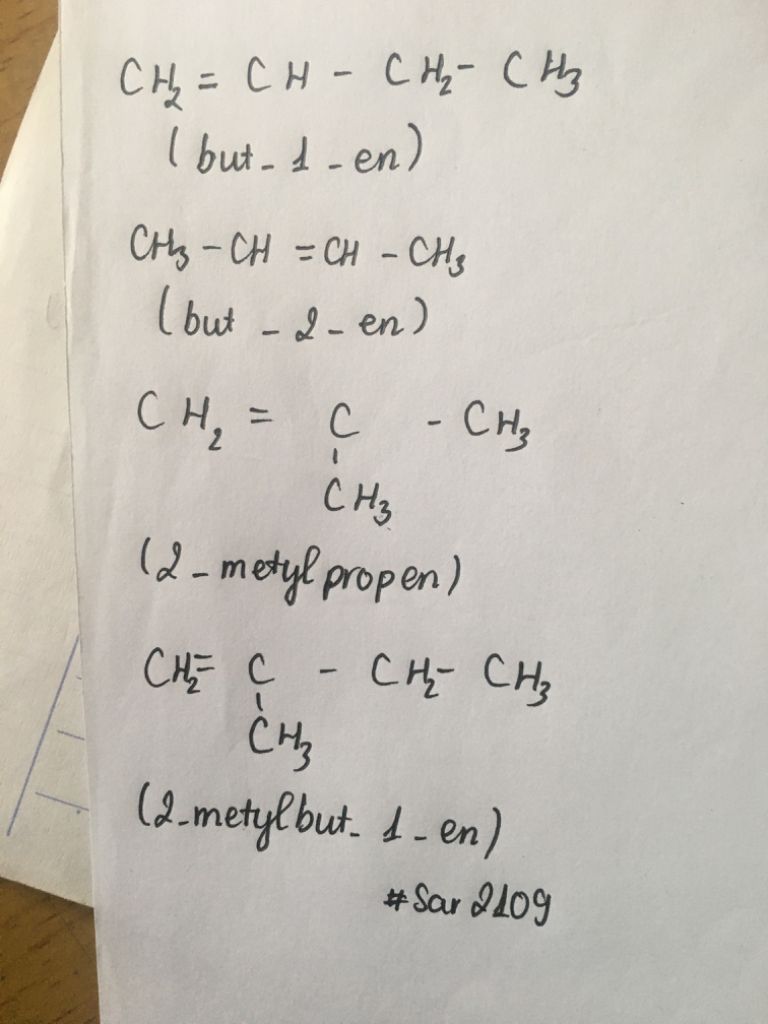 CH₂ = CH - CH₂ - CH₃
(but - 1 - en)
CH₃ - CH = CH - CH₃
(but - 2 - en)
CH₂ = C - CH₃
CH₃
(2 - metylpropen)
CH₂ = C - CH₂ - CH₃
CH₃
(2 - metylbut - 1 - en)
#Sar 2109